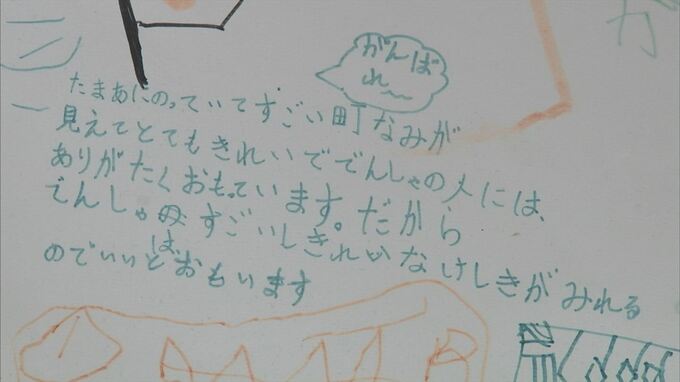 がんば
れ〜
たまあにのっていてすごい町なみが
見えてとてもきれいででんしゃの人には、
ありがたくおもっています。だから
でんしゃは、すごいしきれいなけしきがみれる
のでいいとおもいます
が